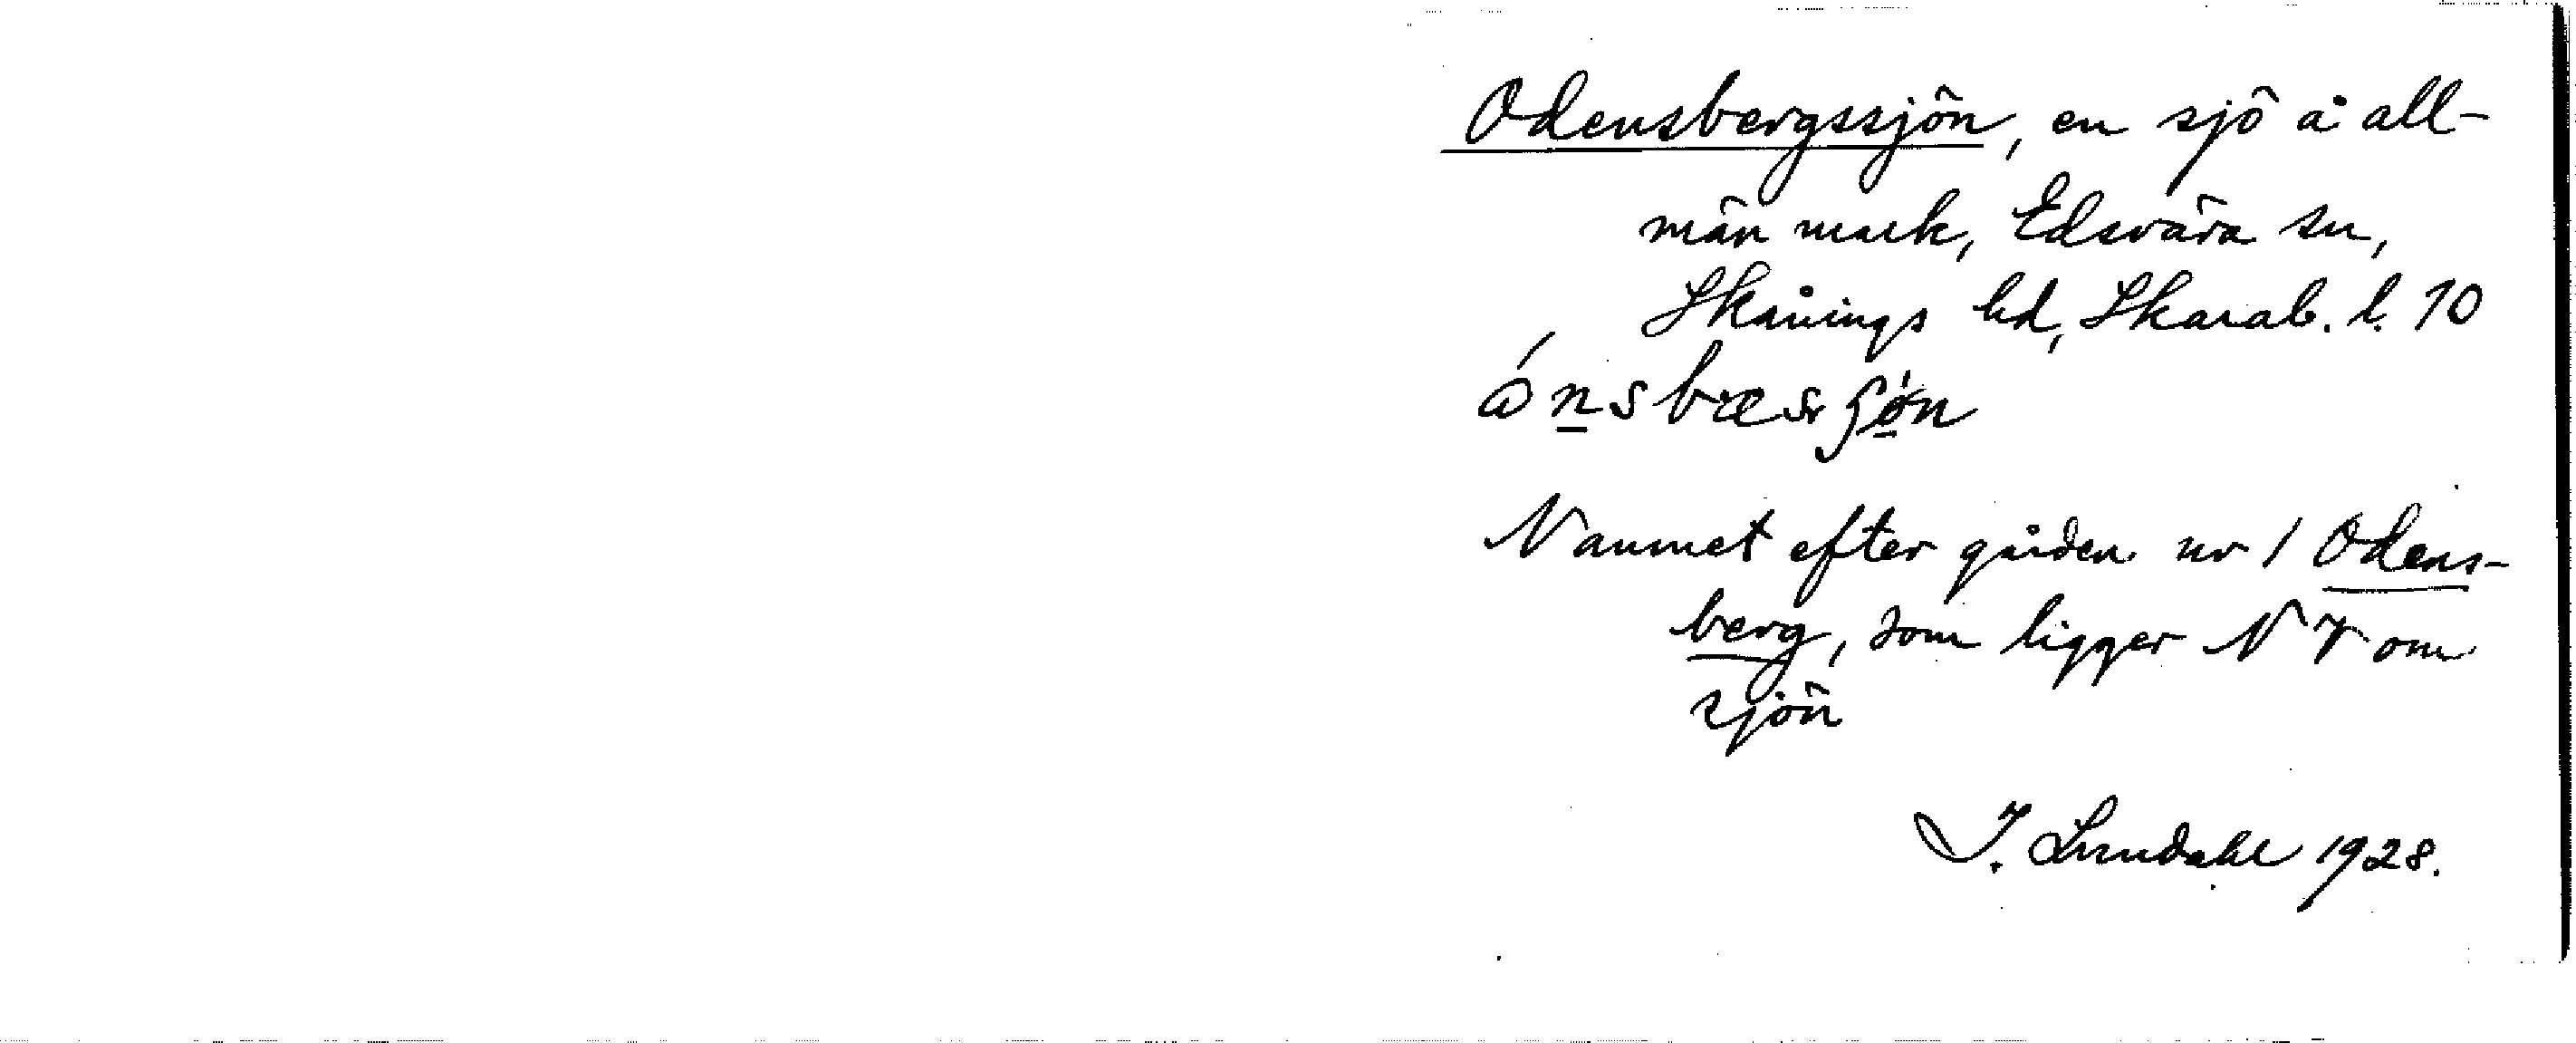 Odensbergssjön, en sjö å all-
män mark, Edsvära sn,
Skånings hd, Skarab. l. 10
ónsbæsrjön
Namnet efter gården nr 1 Odens-
berg, som ligger NV om
sjön
I. Lundahl 1928.